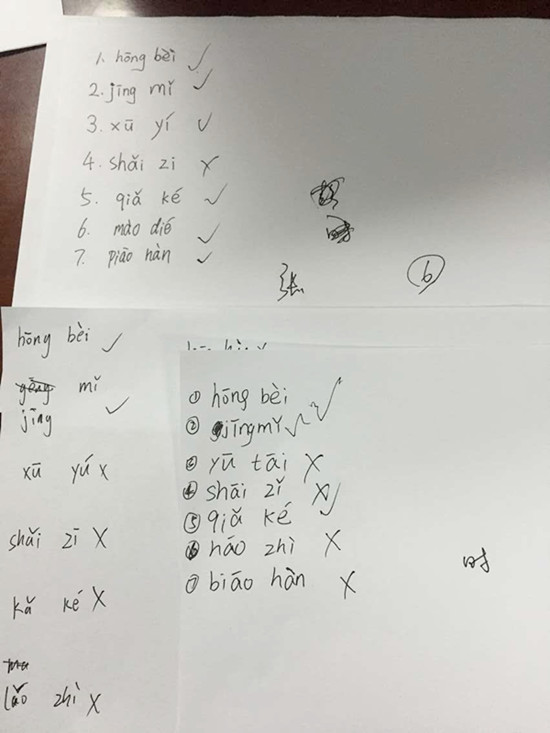 1. hōng bèi ✓
2. jīng mǐ ✓
3. xū yí ✓
4. shǎi zi ✗
5. qiǎ ké ✓
6. mào dié ✓
7. piāo hàn ✓
张
6
hōng bèi ✓
mǐ
jīng ✓
xū yú ✗
shǎi zī ✗
kǎ ké ✗
lǎo zhì ✗
① hōng bèi ✓
② jīng mǐ ✓
③ yū tāi ✗
④ shāi zǐ ✗
⑤ qiǎ ké ✓
⑥ háo zhì ✗
⑦ biāo hàn ✗